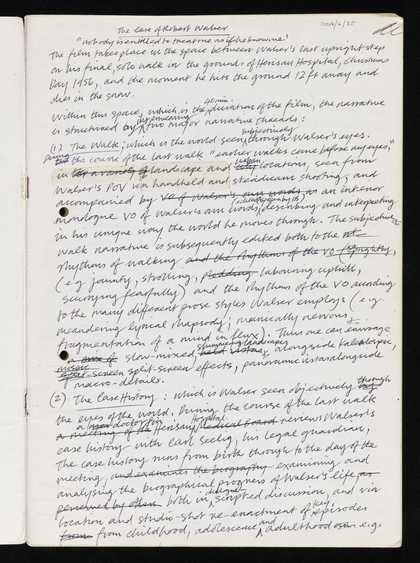 The Case of Robert Walser
"nobody is entitled to treat me as if he knew me"
The film takes place in the space between Walser's last upright step
on his final, solo walk in the grounds of Herisau Hospital, Christmas
Day 1956, and the moment he hits the ground 12ft away and
dies in the snow.
Within this space, which is the 40min duration of the film, the narrative
is structured by two major narrative threads:
(1) The Walk; which is the world seen subjectively through Walser's eyes.
During the course of the last walk "earlier walks came before my eyes,"
in landscape and urban locations, seen from
Walser's POV via handheld and steadicam shooting, and
accompanied by vo of Walser's own words as an interior
monologue VO of Walser's own words describing and interpreting
in his unique way the world he moves through. The subjective
walk narrative is subsequently edited both to the
rhythms of walking and the rhythms of the VO
(e.g. jaunty, strolling, labouring uphill,
scurrying fearfully) and the rhythms of the VO according
to the many different prose styles Walser employs (e.g.
meandering lyrical rhapsody, manically nervous
fragmentation of a mind in flux). Thus one can envisage
slow-mixed, landscapes alongside kaleidoscopic,
split-screen effects, panoramic vistas alongside
macro-details.
(2) The Case History: which is Walser seen objectively through
the eyes of the world. During the course of the last walk
a meeting of the Herisau Hospital Medical Board reviews Walser's
case history with Carl Seelig, his legal guardian,
The case history runs from birth through to the day of the
meeting, and examines the biography examining and
analysing the biographical progress of Walser's life as
perceived by others both in scripted discussion, and via
location and studio-shot re-enactment of key episodes
from childhood, adolescence and adulthood e.g.